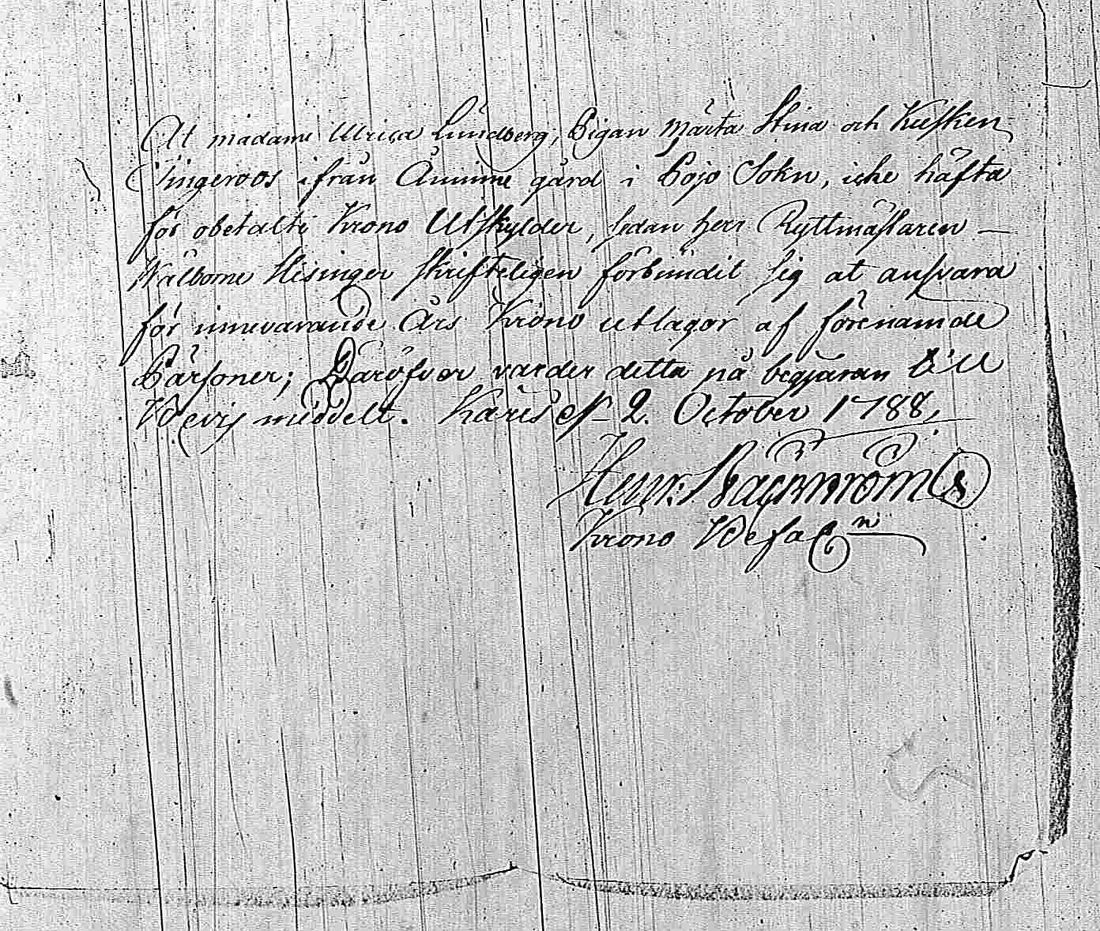 At madame Ulrica Lundberg, Pigan Märta Stina och Kusken
Tingeroos ifrån Åminne gård i Pojo Sokn, icke häfta
för obetalte Krono Utskylder, sedan herr Ryttmästaren
Wälborne Hisinger skrifteligen förbundit sig at ansvara
för innevarande Års Krono utlagor af förenämde
Pärsoner; Daröfver varder detta på begjäran till
Bevis meddelt. Karis d. 2. October 1788.
Henr.
Krono Befall